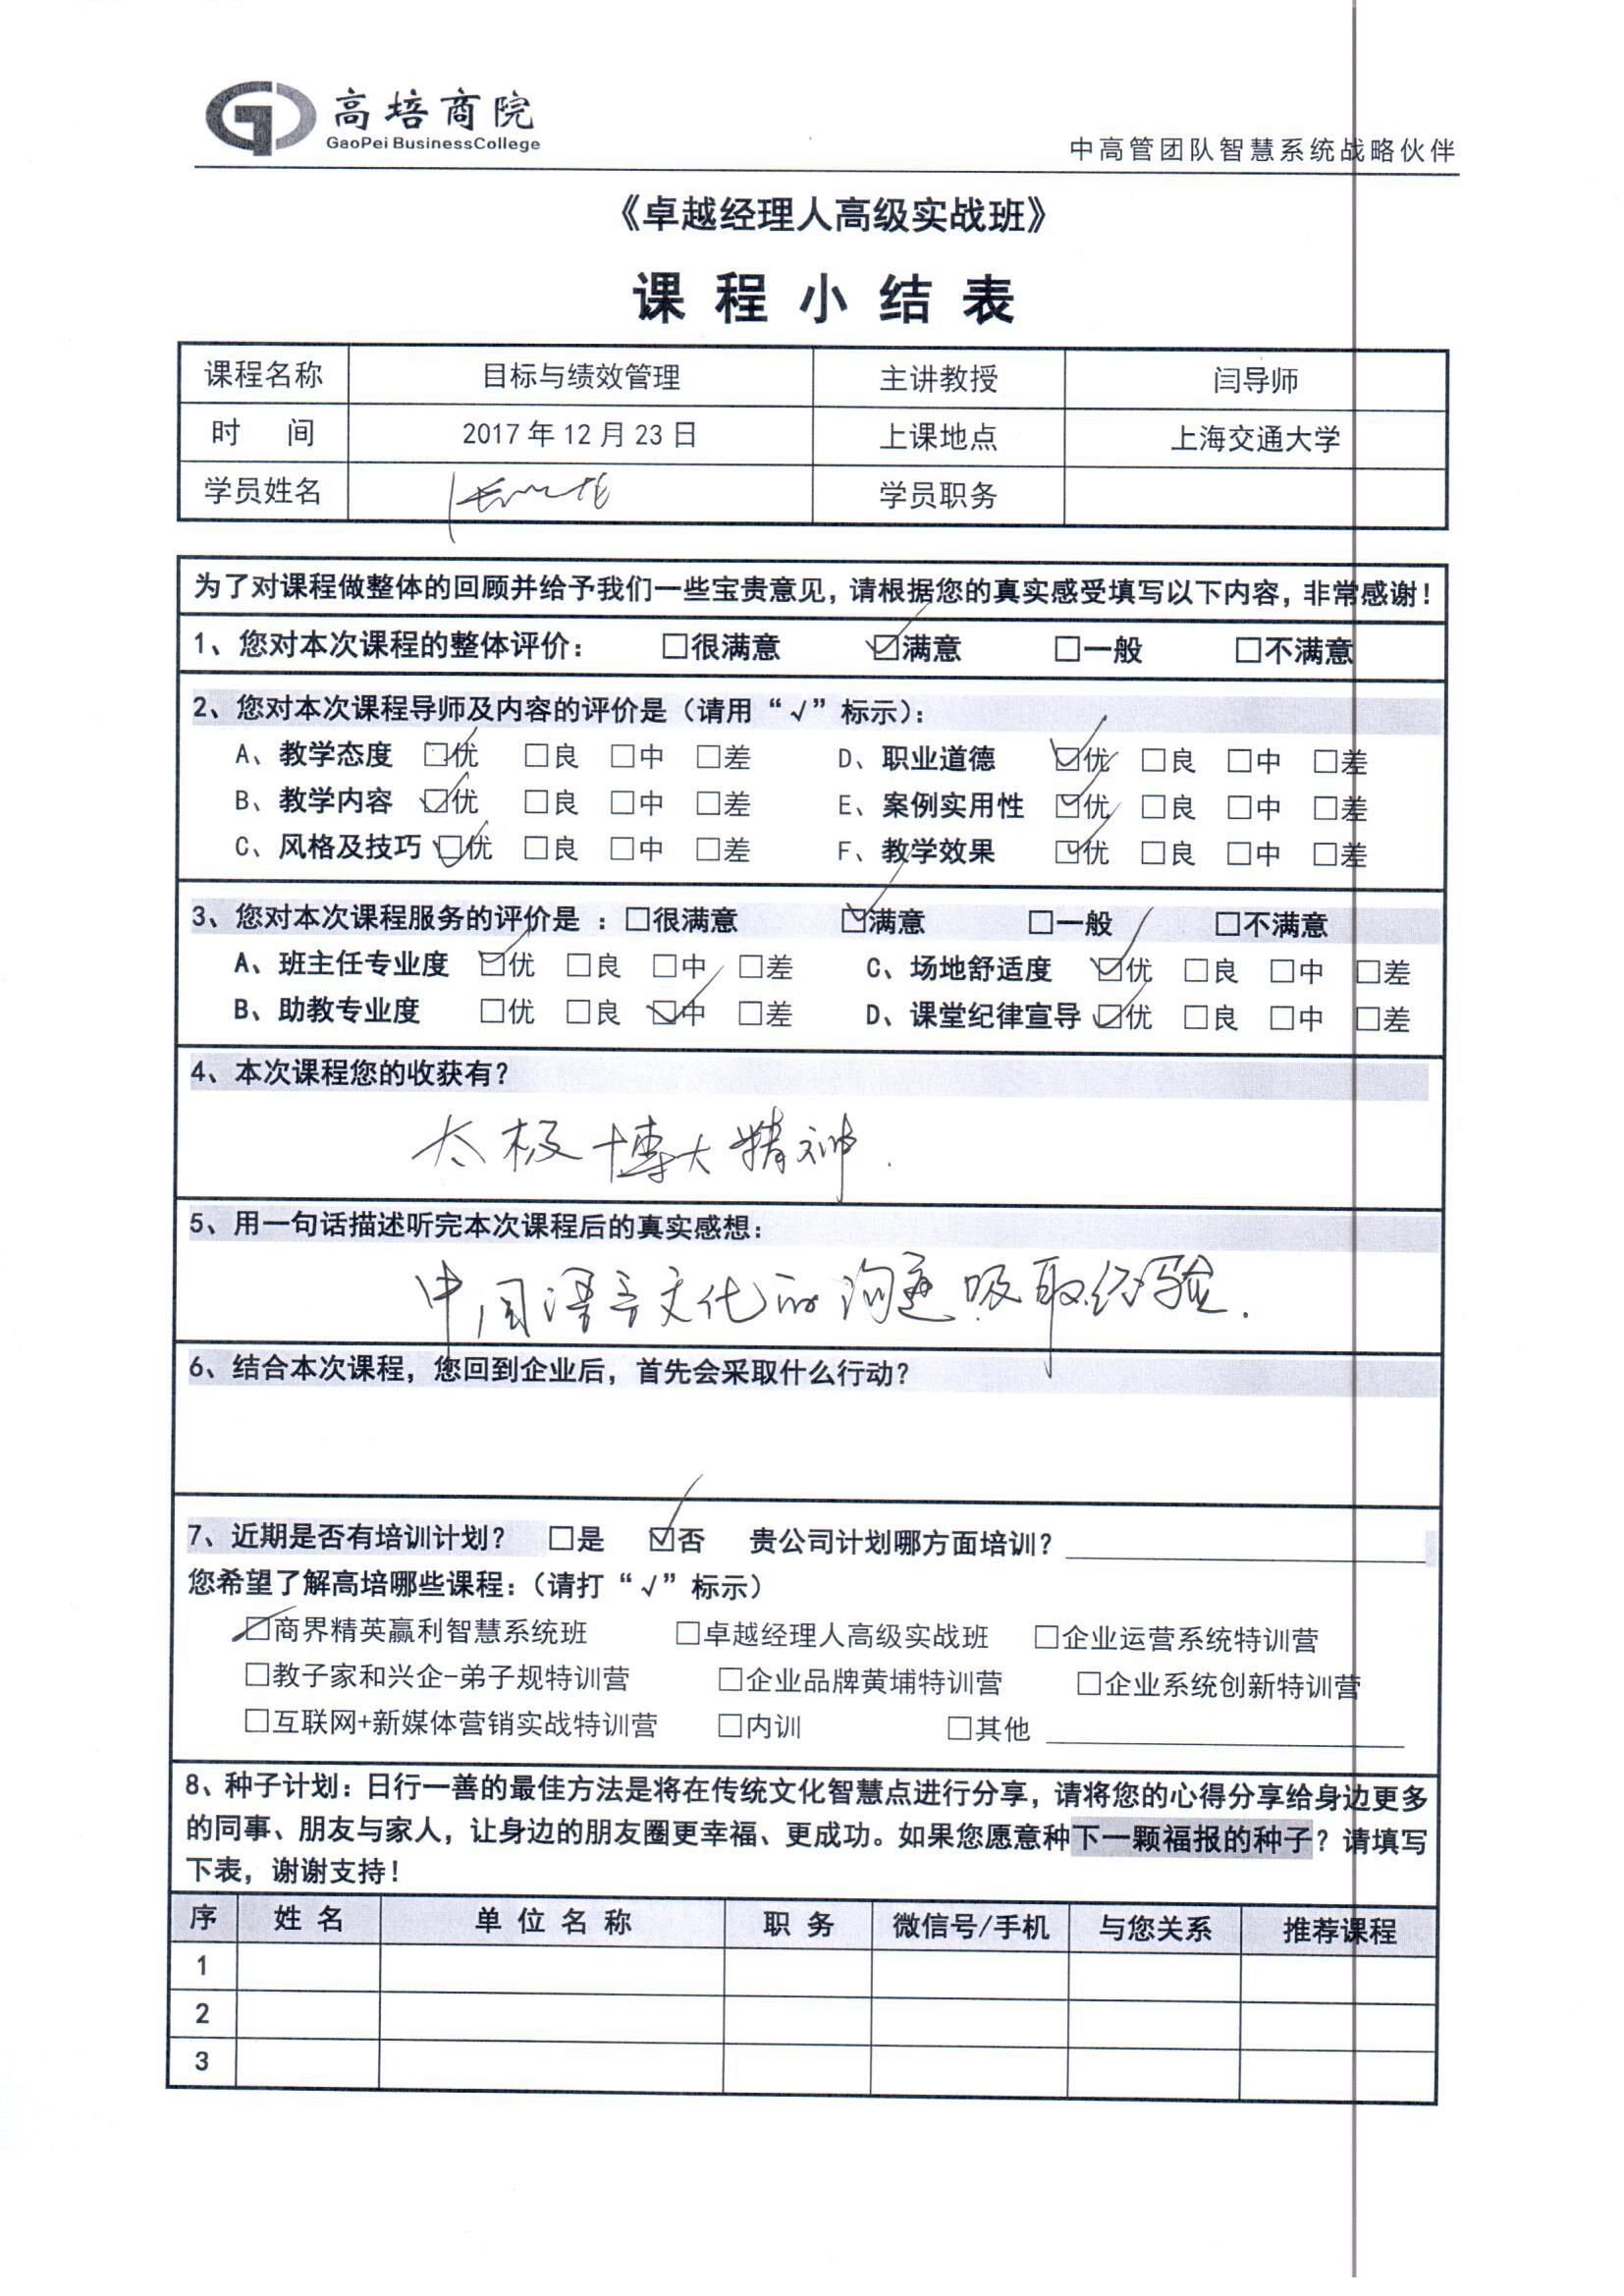 高培商院
GaoPei BusinessCollege
中高管团队智慧系统战略伙伴
《卓越经理人高级实战班》
课程小结表
课程名称 目标与绩效管理 主讲教授 闫导师
时 间 2017年12月23日 上课地点 上海交通大学
学员姓名 学员职务
为了对课程做整体的回顾并给予我们一些宝贵意见，请根据您的真实感受填写以下内容，非常感谢！
1、您对本次课程的整体评价： □很满意 ☑满意 □一般 □不满意
2、您对本次课程导师及内容的评价是（请用“√”标示）：
A、教学态度 ☑优 □良 □中 □差 D、职业道德 ☑优 □良 □中 □差
B、教学内容 ☑优 □良 □中 □差 E、案例实用性 ☑优 □良 □中 □差
C、风格及技巧 ☑优 □良 □中 □差 F、教学效果 ☑优 □良 □中 □差
3、您对本次课程服务的评价是：□很满意 ☑满意 □一般 □不满意
A、班主任专业度 ☑优 □良 □中 □差 C、场地舒适度 ☑优 □良 □中 □差
B、助教专业度 □优 □良 ☑中 □差 D、课堂纪律宣导 ☑优 □良 □中 □差
4、本次课程您的收获有？
太极博大精神.
5、用一句话描述听完本次课程后的真实感想：
中国语言文化的沟通吸取经验.
6、结合本次课程，您回到企业后，首先会采取什么行动？
7、近期是否有培训计划？ □是 ☑否 贵公司计划哪方面培训？
您希望了解高培哪些课程：（请打“√”标示）
☑商界精英赢利智慧系统班 □卓越经理人高级实战班 □企业运营系统特训营
□教子家和兴企-弟子规特训营 □企业品牌黄埔特训营 □企业系统创新特训营
□互联网+新媒体营销实战特训营 □内训 □其他
8、种子计划：日行一善的最佳方法是将在传统文化智慧点进行分享，请将您的心得分享给身边更多
的同事、朋友与家人，让身边的朋友圈更幸福、更成功。如果您愿意种下一颗福报的种子？请填写
下表，谢谢支持！
序 姓名 单位名称 职务 微信号/手机 与您关系 推荐课程
1
2
3